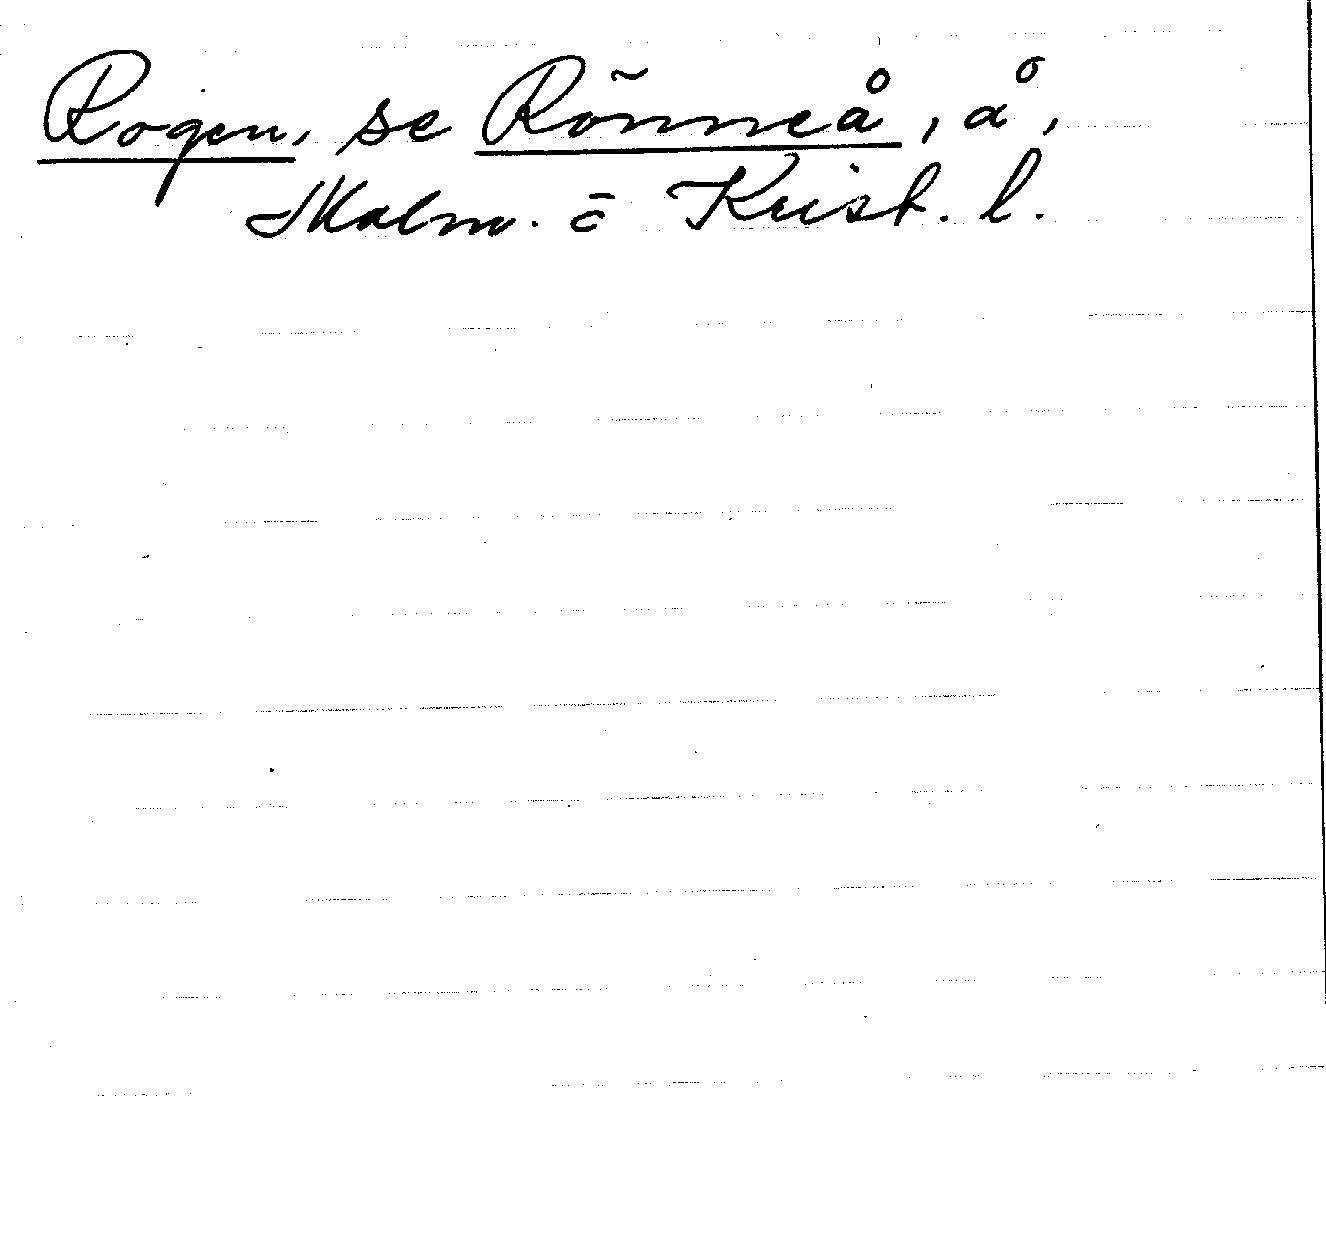 Rogen, se Rönneå, å,
Malm. o Krist. l.